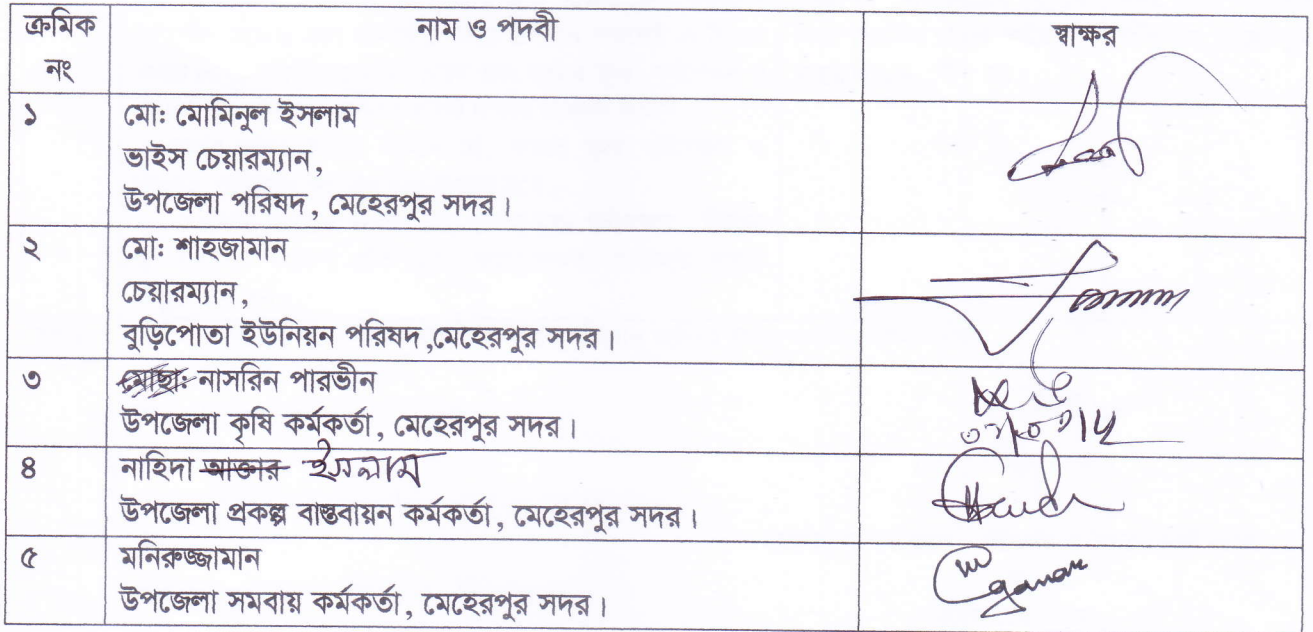 ক্রমিক নং নাম ও পদবী স্বাক্ষর
১ মো: মোমিনুল ইসলাম
ভাইস চেয়ারম্যান,
উপজেলা পরিষদ, মেহেরপুর সদর।
২ মো: শাহজামান
চেয়ারম্যান,
বুড়িপোতা ইউনিয়ন পরিষদ,মেহেরপুর সদর।
৩ মোছা: নাসরিন পারভীন
উপজেলা কৃষি কর্মকর্তা, মেহেরপুর সদর।
৪ নাহিদা আক্তার ইসলাম
উপজেলা প্রকল্প বাস্তবায়ন কর্মকর্তা, মেহেরপুর সদর।
৫ মনিরুজ্জামান
উপজেলা সমবায় কর্মকর্তা, মেহেরপুর সদর।